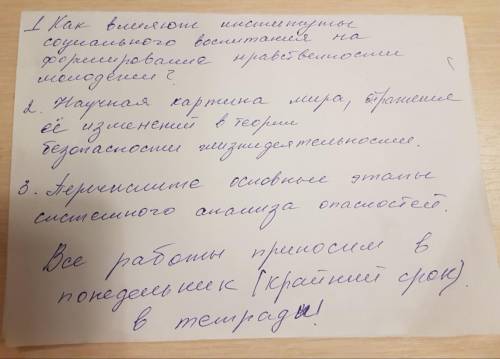 1. Как влияют институты
социального воспитания на
формирование нравственности
молодежи?
2. Научная картина мира, отражение
её изменений в теории
безопасности жизнедеятельности.
3. Перечислите основные этапы
системного анализа опасностей.
Все работы приносим в
понедельник (крайний срок)
в тетради!